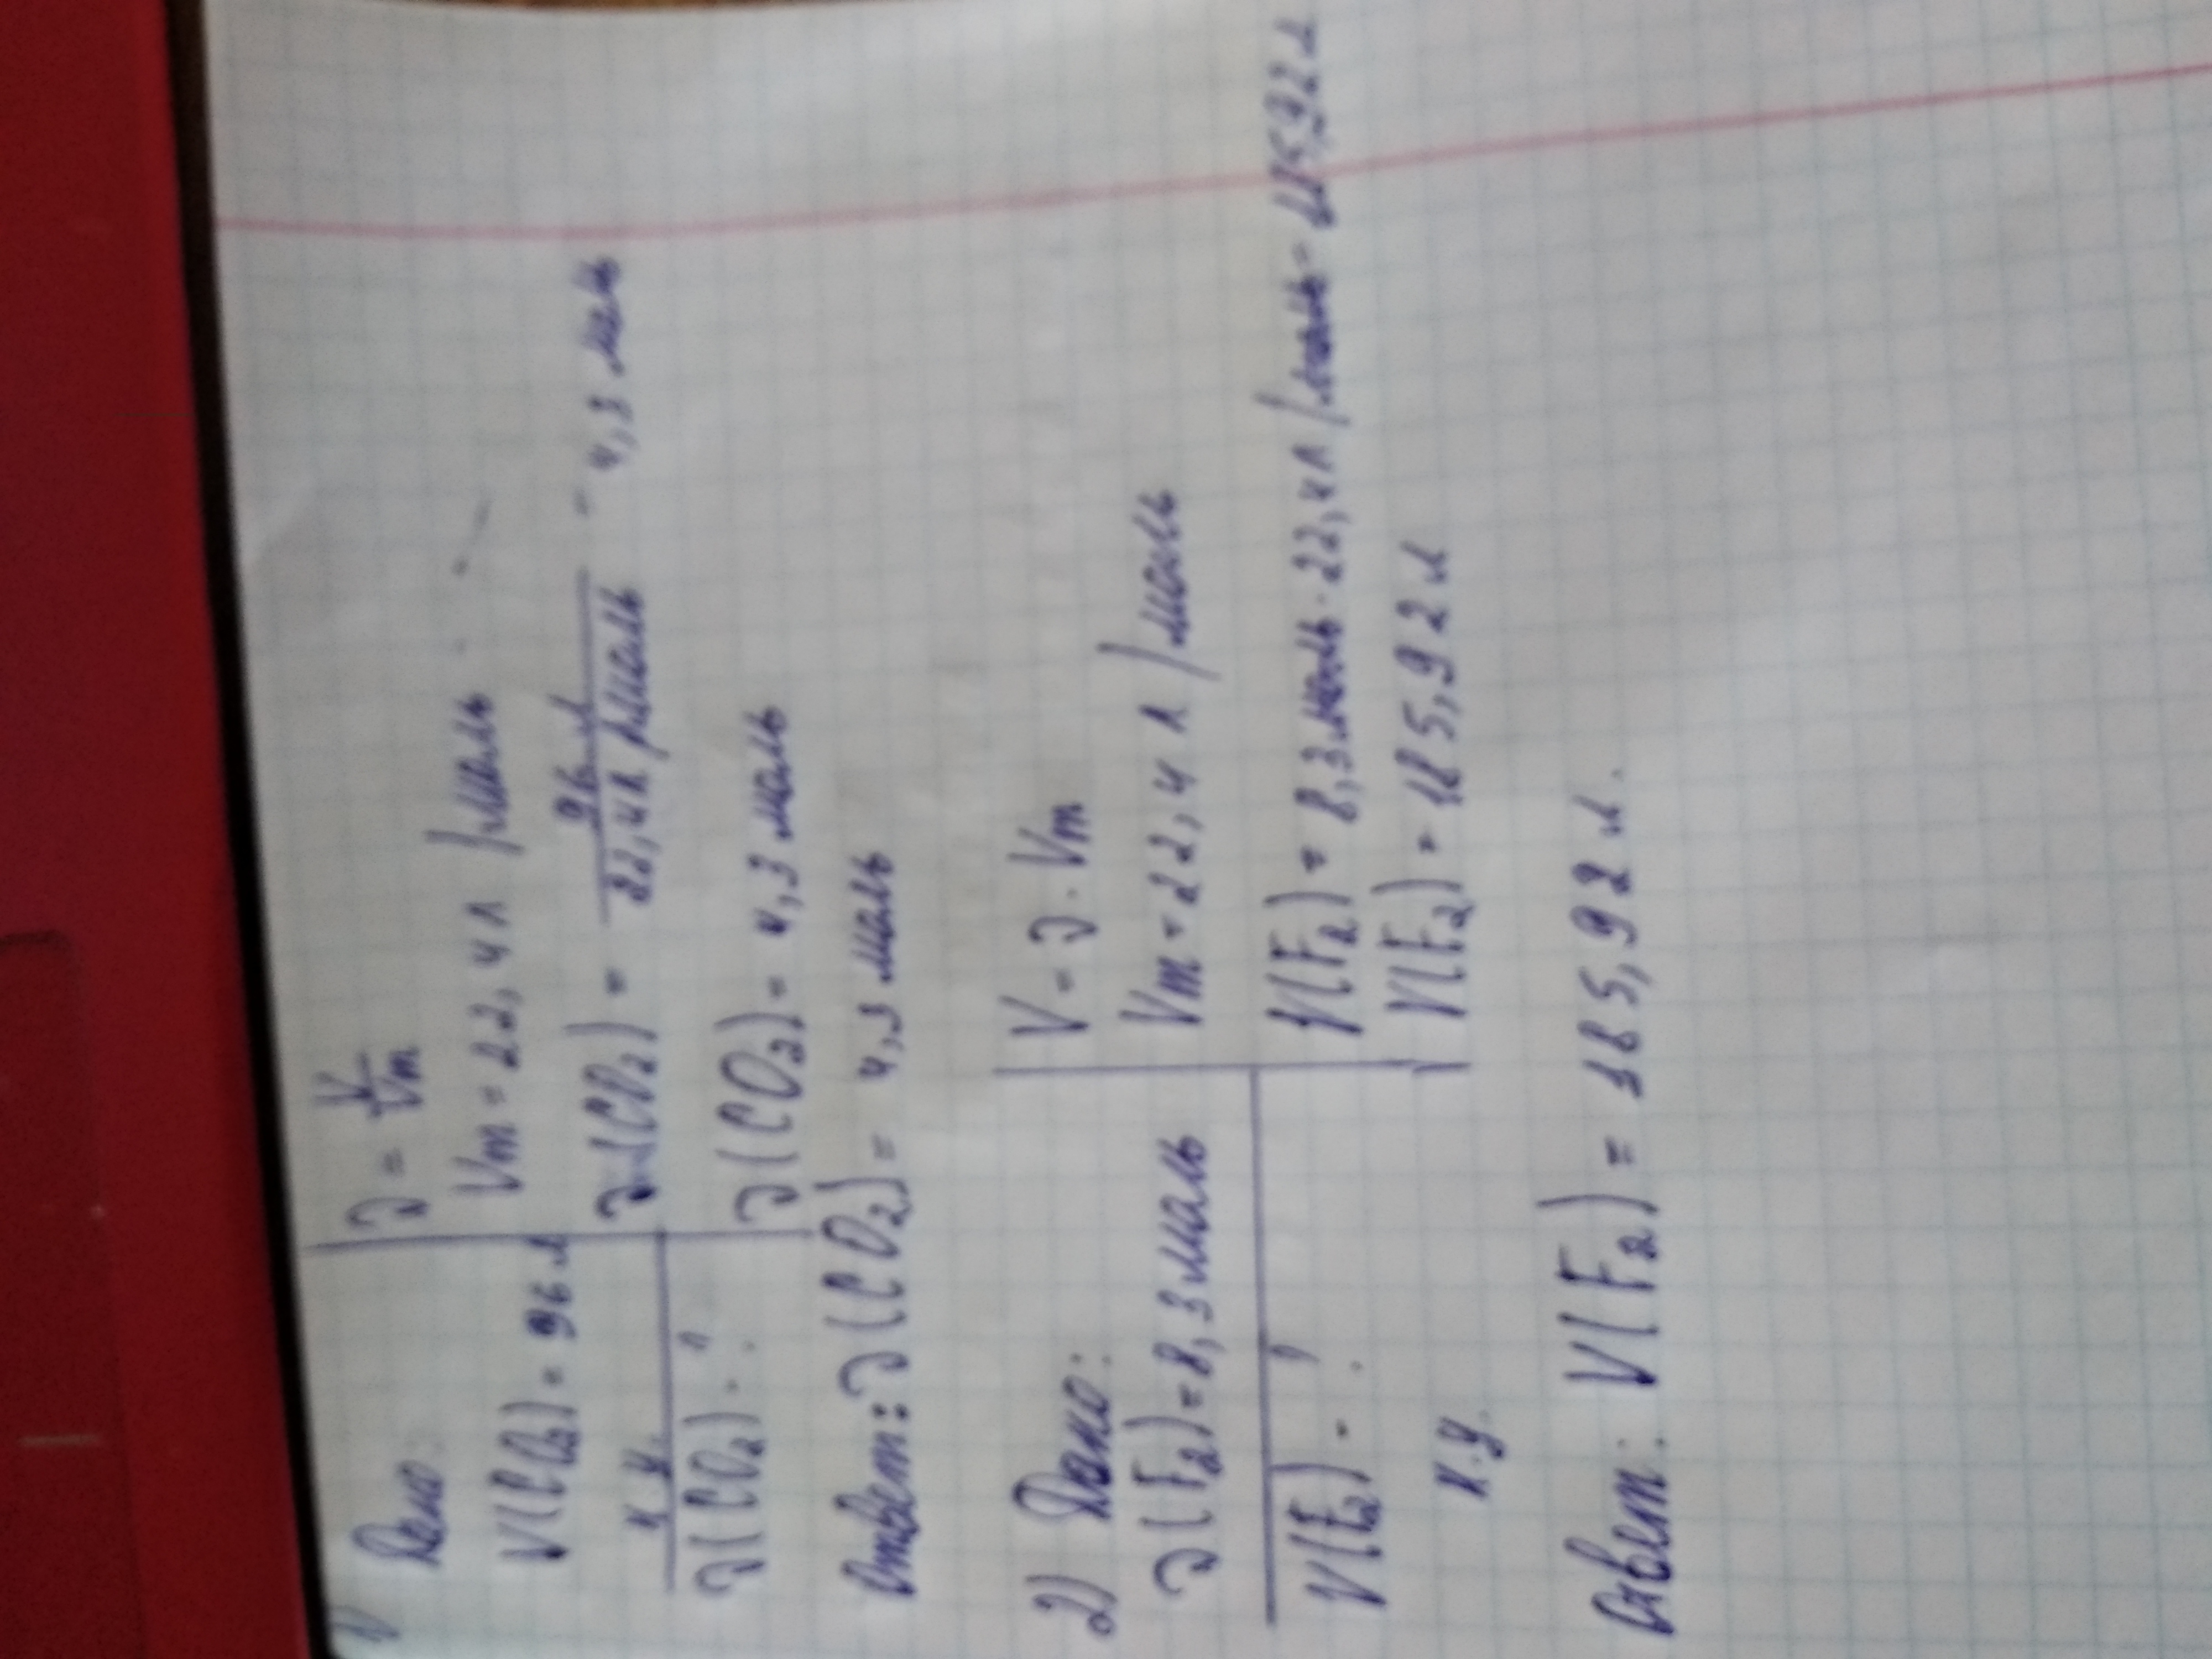 1)
Дано:
V(CO₂) = 96 л
н.у.
∂(CO₂) - ?
∂ = V/Vm
Vm = 22,4 л/моль
∂(CO₂) = 96 л / 22,4 л/моль = 4,3 моль
∂(CO₂) = 4,3 моль
Ответ: ∂(CO₂) = 4,3 моль
2) Дано:
∂(F₂) = 8,3 моль
V(F₂) - ?
н.у.
V = ∂ · Vm
Vm = 22,4 л/моль
V(F₂) = 8,3 моль · 22,4 л/моль = 185,92 л
V(F₂) = 185,92 л
Ответ: V(F₂) = 185,92 л.